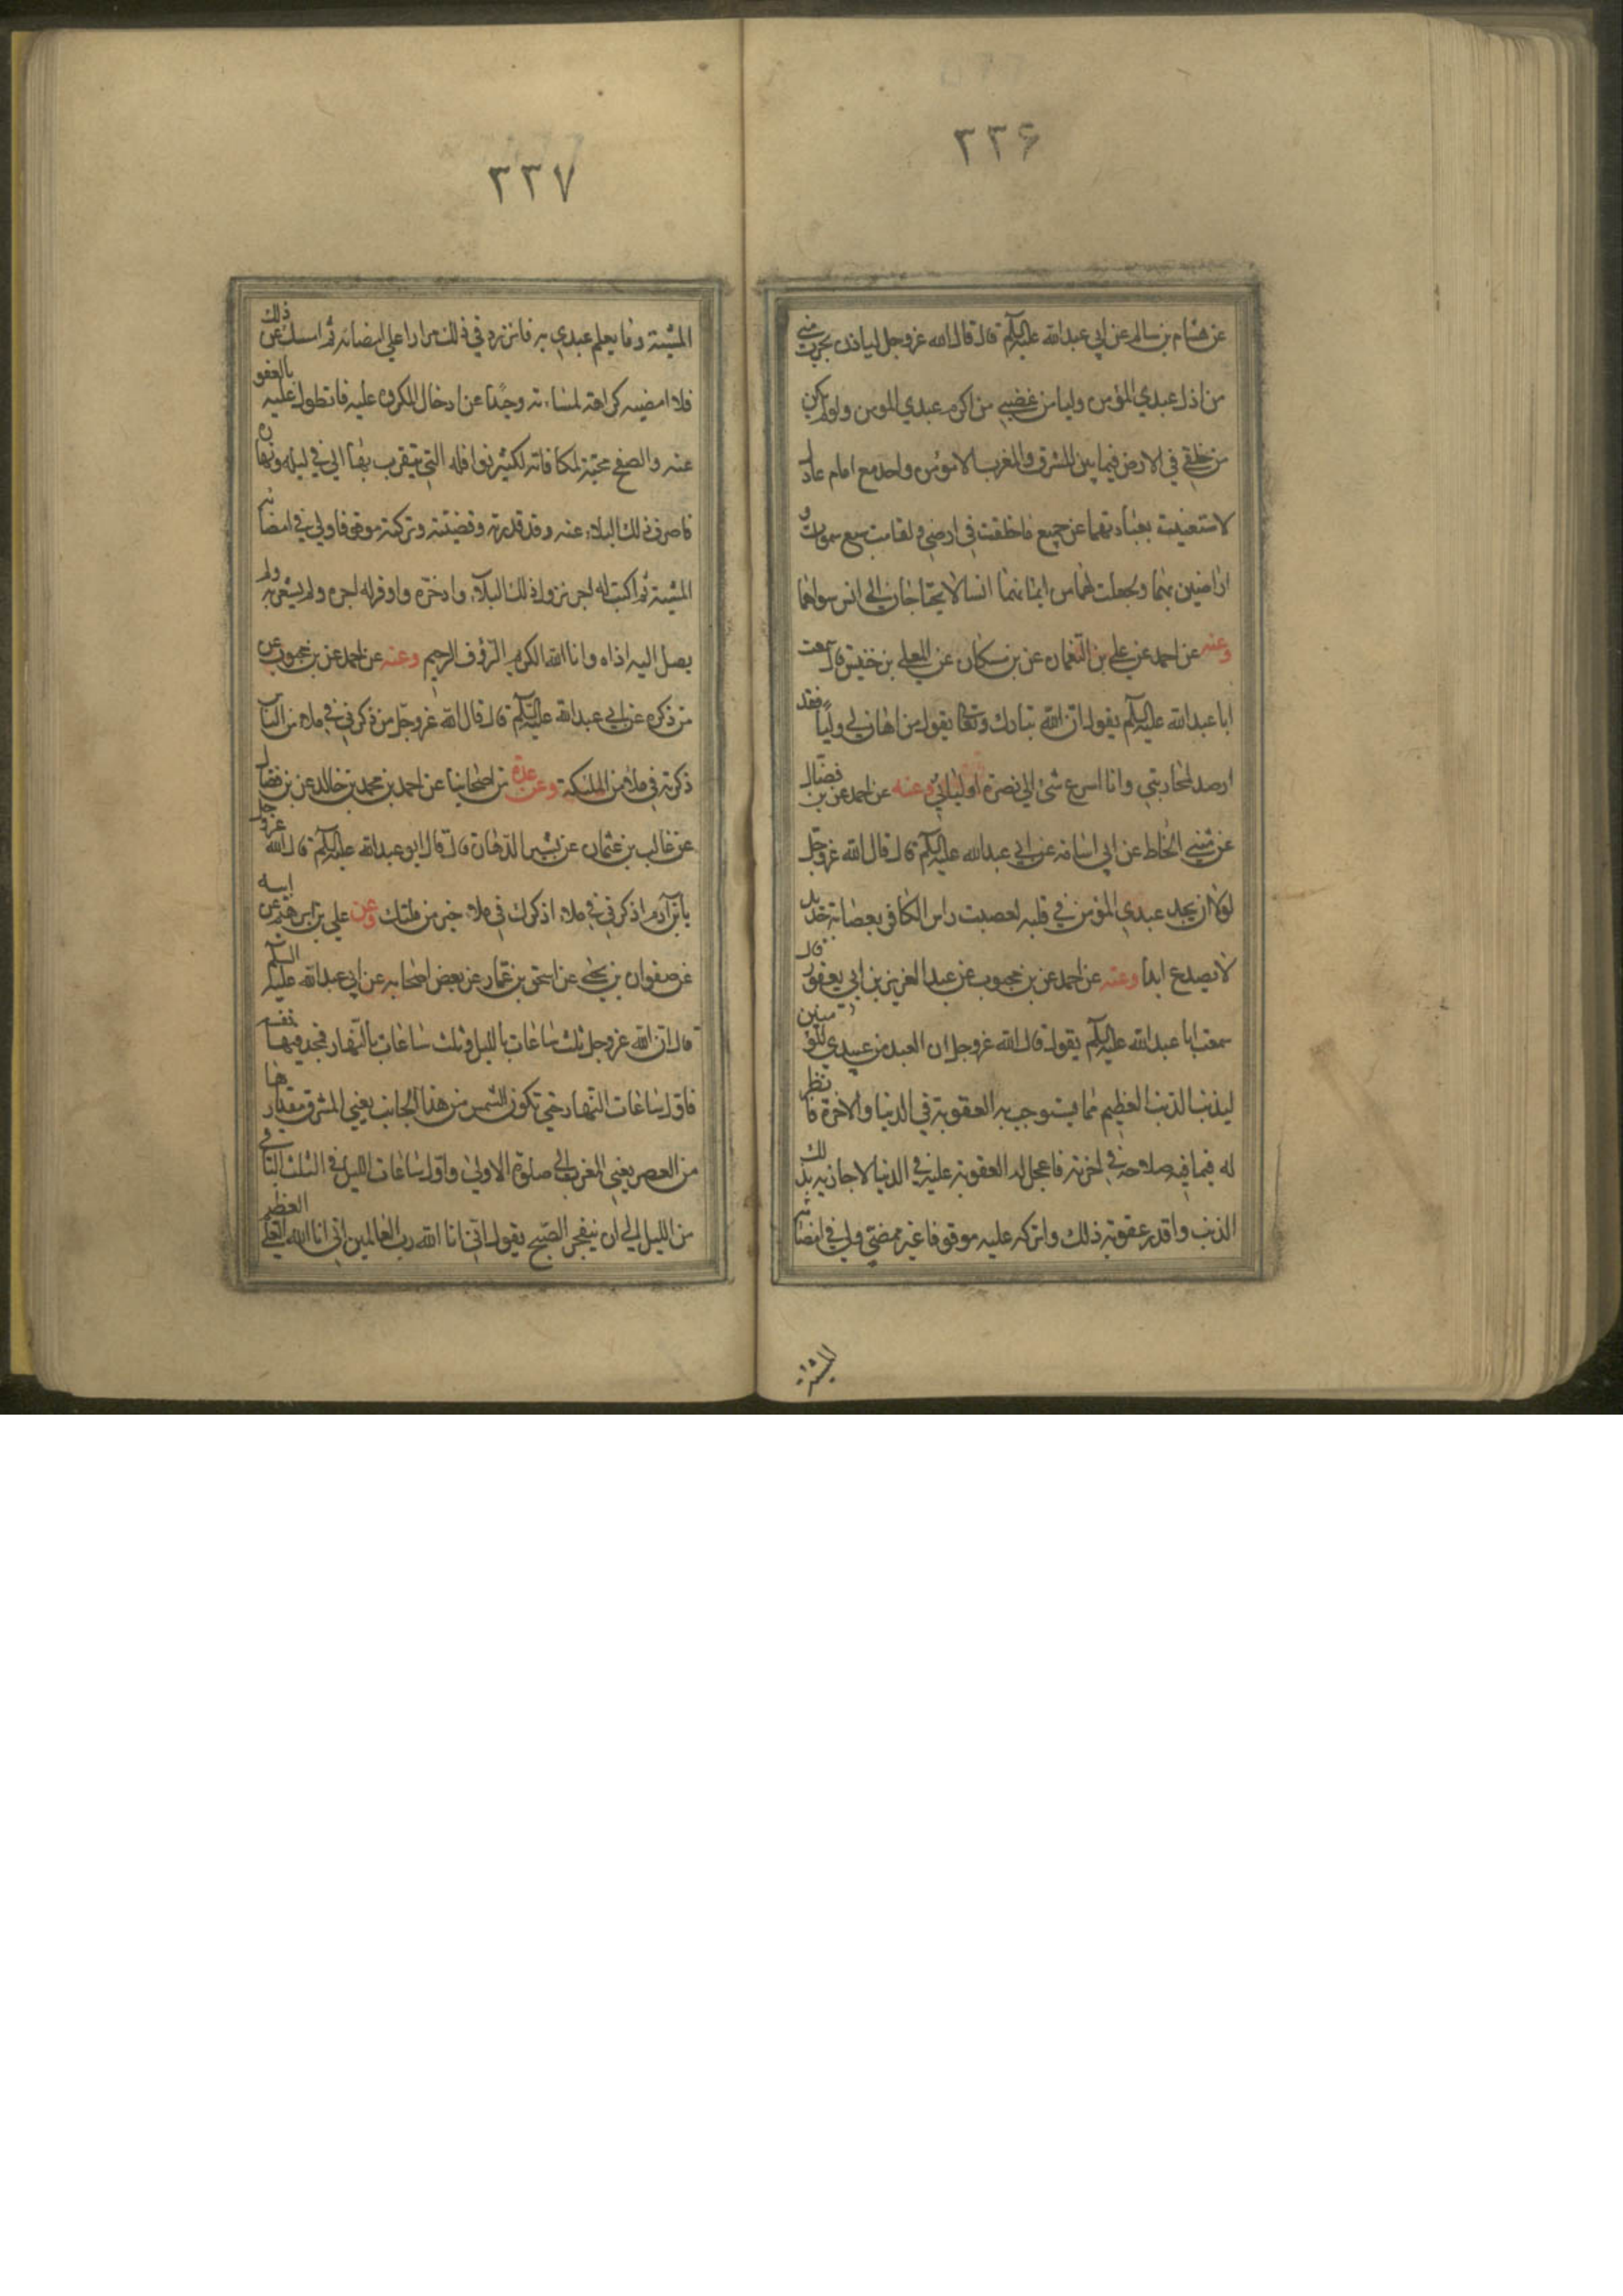 ٢٢۶
عن هشام بن سالم عن ابي عبدالله عليه السلام قال قال الله عز وجل لياذن بحرب مني
من اذل عبدي المؤمن وليامن غضبي من اكرم عبدي المومن ولو لم يكن
من خلقي في الارض فيما بين المشرق والمغرب الا مؤمن واحد مع امام عادل
لاستغنيت بعبادتهما عن جميع ما خلقت في ارضي و لقامت سبع سموات و
ارضين بهما ولجعلت لهما من ايمانهما انسا لا يحتاجان الى انس سواهما
وعنه عن احمد عن علي بن النعمان عن بن مسكان عن المعلى بن خنيس قال سمعت
ابا عبدالله عليه السلام يقول ان الله تبارك وتعالى يقول من اهان لي وليا فقد
ارصد لمحاربتي وانا اسرع شئ الي نصرة اوليائي وعنه عن احمد عن بن فضال
عن مثنى الحناط عن ابي اسامة عن ابي عبدالله عليه السلام قال قال الله عز وجل
لولا ان يجد عبدي المؤمن في قلبه لعصبت راس الكافر بعصابة حديد
لا يصدع ابدا وعنه عن احمد عن بن محبوب عن عبد العزيز بن ابي يعفور قال
سمعت ابا عبدالله عليه السلام يقول قال الله عز وجل ان العبد من عبيدي المؤمنين
ليذنب الذنب العظيم مما يستوجب به العقوبة في الدنيا والاخرة فانظر
له فيما فيه صلاحه في اخرته فاعجل له العقوبة عليه في الدنيا لاجازيه بذلك
الذنب واقدر عقوبة ذلك واتركه عليه موقوفا غير ممضي ولي في امضائه
المشية
٢٢٧
المشية وما يعلم عبدي به فاتردد في ذلك مرارا على امضائه ثم امسك عن ذلك
فلا امضيه كراهة لمساءته وحيدا عن ادخال المكروه عليه فاتطول عليه بالعفو
عنه والصفح محبة لمكافاته لكثير نوافله التي يتقرب بها الي في ليله ونهاره
فاصرف ذلك البلاء عنه وقد قدرته وقضيته وتركته موقوفا ولي في امضائه
المشية ثم اكتب له اجر نزول ذلك البلاء وادخره واوفر له اجره ولم يشعر به ولم
يصل اليه اذاه وانا الله الكريم الرؤف الرحيم وعنه عن احمد عن بن محبوب عن
من ذكره عن ابي عبدالله عليه السلام قال قال الله عز وجل من ذكرني في ملاء من الناس
ذكرته في ملاء من الملئكة وعن عدة من اصحابنا عن احمد بن محمد بن خالد عن بن فضال
عن غالب بن عثمان عن بشير الدهان قال قال ابو عبدالله عليه السلام قال الله عز وجل
يابن آدم اذكرني في ملاء اذكرك في ملاء خير من ملئك وعن علي بن ابراهيم عن ابيه
عن صفوان بن يحيى عن اسحق بن عمار عن بعض اصحابه عن ابي عبدالله عليه السلم
قال ان الله عز وجل ثلث ساعات بالليل وثلث ساعات بالنهار فمجد فيها نفسه
فاول ساعات النهار حين تكون الشمس من هذا الجانب يعني المشرق مقدارها
من العصر يعني المغرب الى صلوة الاولى واول ساعات الليل في الثلث الثاني
من الليل الى ان ينفجر الصبح يقول اني انا الله رب العالمين اني انا الله العلي العظيم